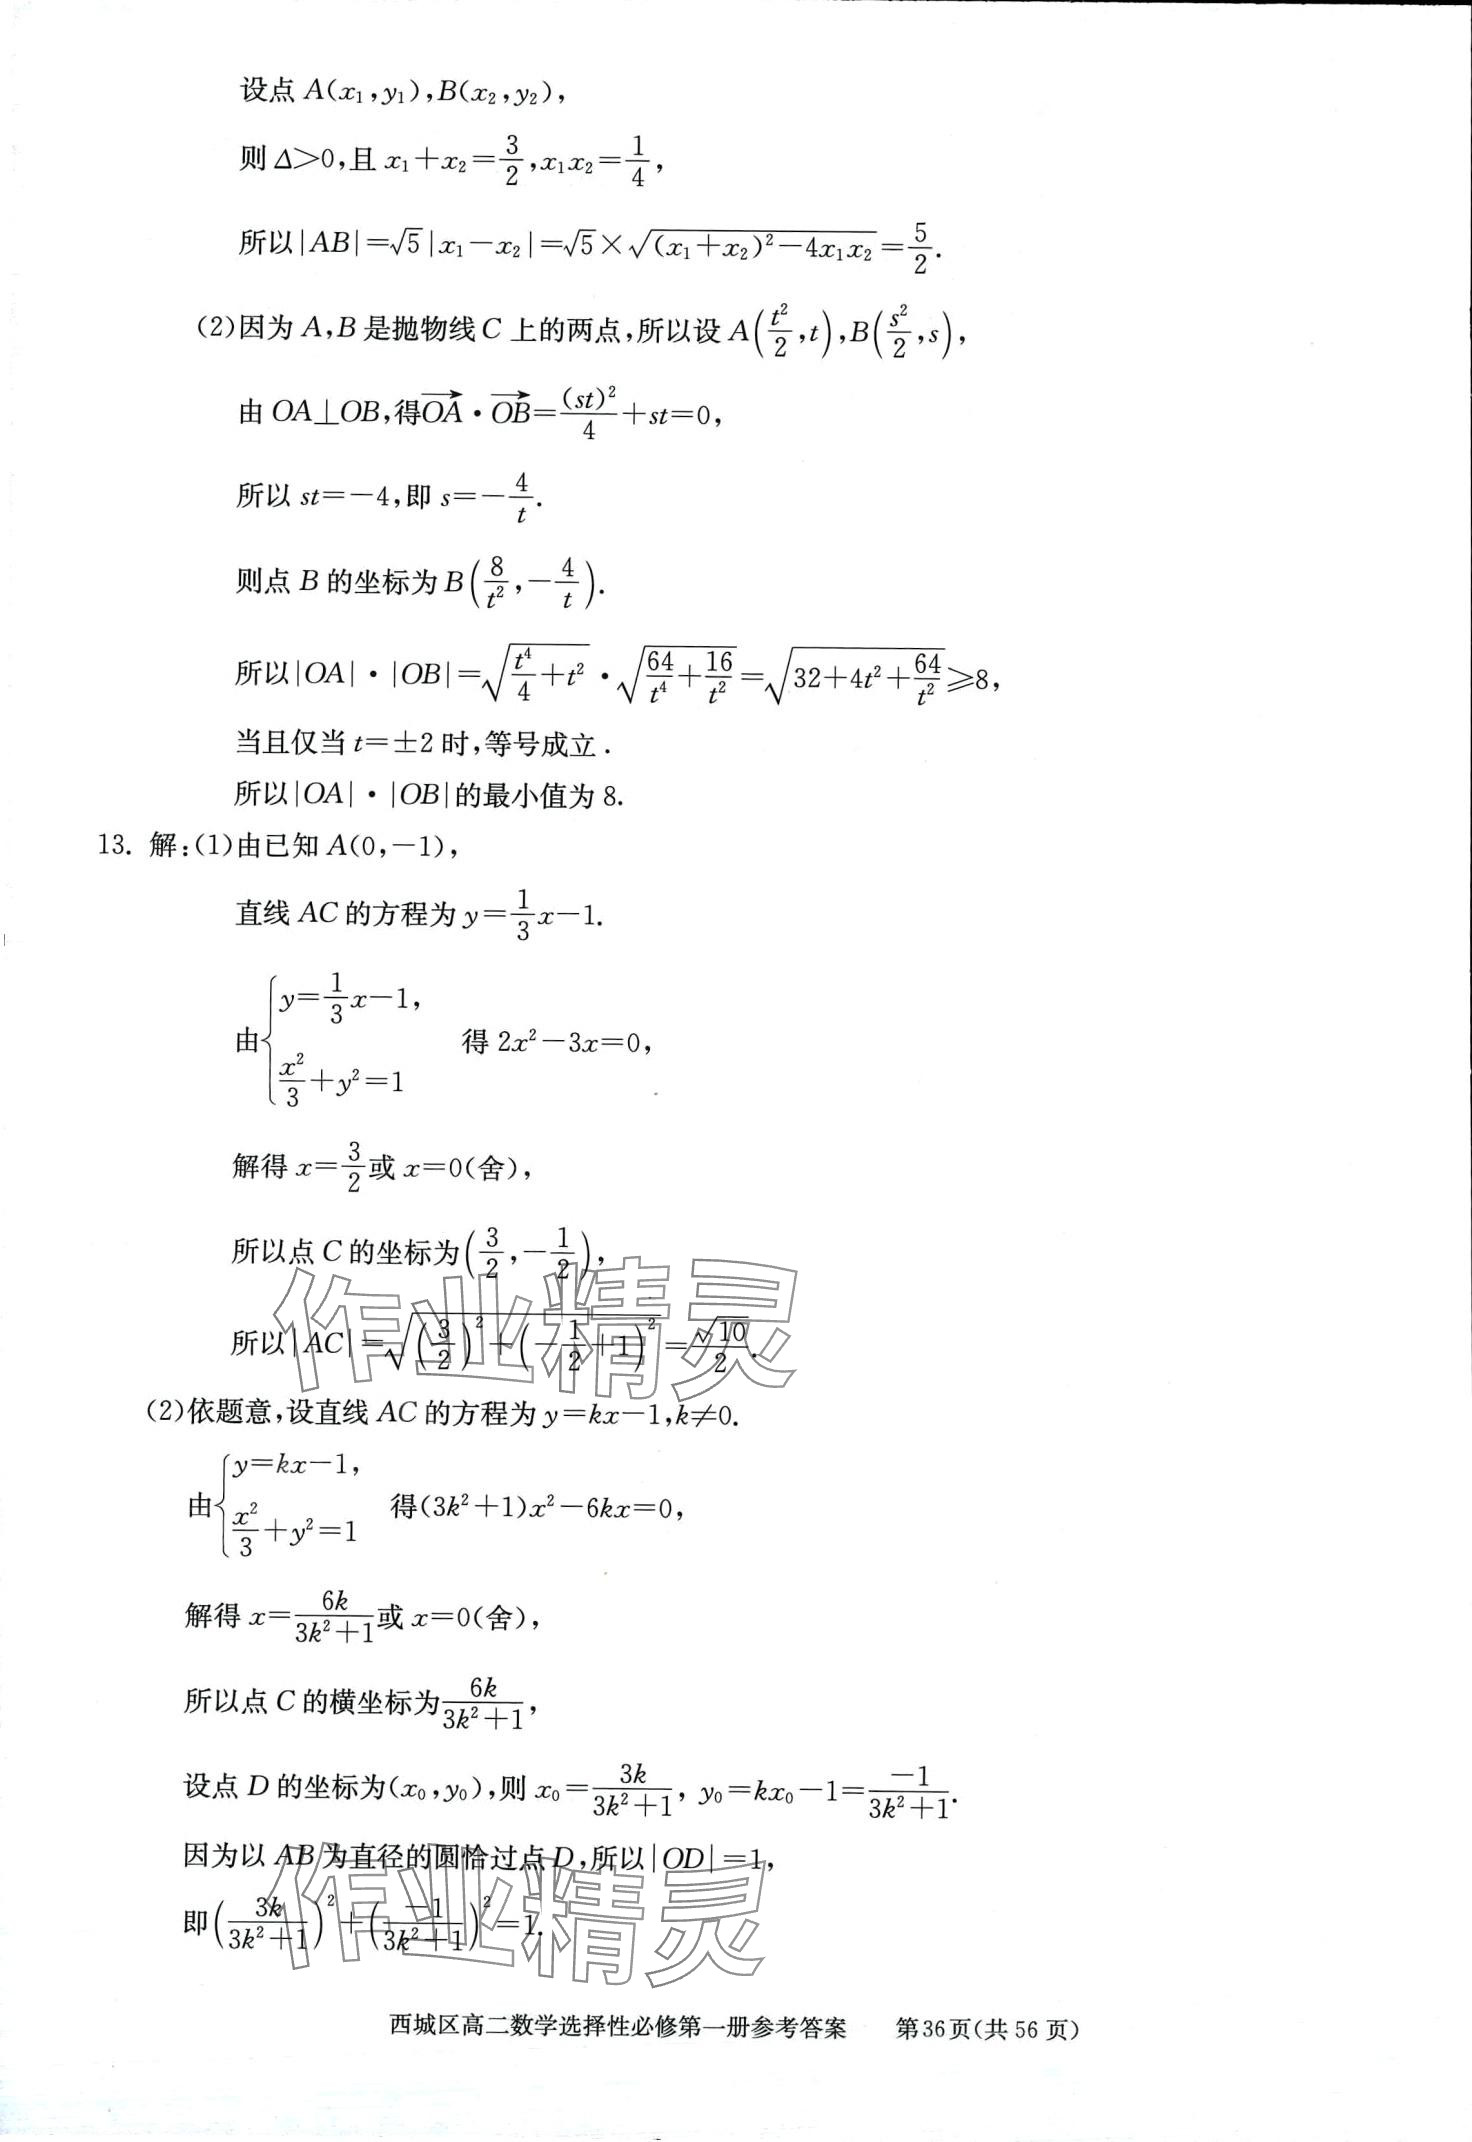 设点 A(x₁,y₁),B(x₂,y₂),
则 Δ>0,且 x₁+x₂=3/2,x₁x₂=1/4,
所以|AB|=√5|x₁-x₂|=√5×√((x₁+x₂)²-4x₁x₂)=5/2.
(2)因为 A,B 是抛物线 C 上的两点,所以设 A(t²/2,t),B(s²/2,s),
由 OA⊥OB,得\overrightarrow{OA}·\overrightarrow{OB}=(st)²/4+st=0,
所以 st=-4,即 s=-4/t.
则点 B 的坐标为 B(8/t²,-4/t).
所以|OA|·|OB|=√(t⁴/4+t²)·√(64/t⁴+16/t²)=√(32+4t²+64/t²)≥8,
当且仅当 t=±2 时,等号成立.
所以|OA|·|OB|的最小值为 8.
13. 解:(1)由已知 A(0,-1),
直线 AC 的方程为 y=1/3x-1.
由{y=1/3x-1, x²/3+y²=1 得 2x²-3x=0,
解得 x=3/2或 x=0(舍),
所以点 C 的坐标为(3/2,-1/2),
所以|AC|=√((3/2)²+(-1/2+1)²)=√10/2.
(2)依题意,设直线 AC 的方程为 y=kx-1,k≠0.
由{y=kx-1, x²/3+y²=1 得(3k²+1)x²-6kx=0,
解得 x=6k/(3k²+1)或 x=0(舍),
所以点 C 的横坐标为6k/(3k²+1),
设点 D 的坐标为(x₀,y₀),则 x₀=3k/(3k²+1), y₀=kx₀-1=-1/(3k²+1).
因为以 AB 为直径的圆恰过点 D,所以|OD|=1,
即(3k/(3k²+1))²+(-1/(3k²+1))²=1.
作业精灵
作业精灵
西城区高二数学选择性必修第一册参考答案 第36页(共 56 页)